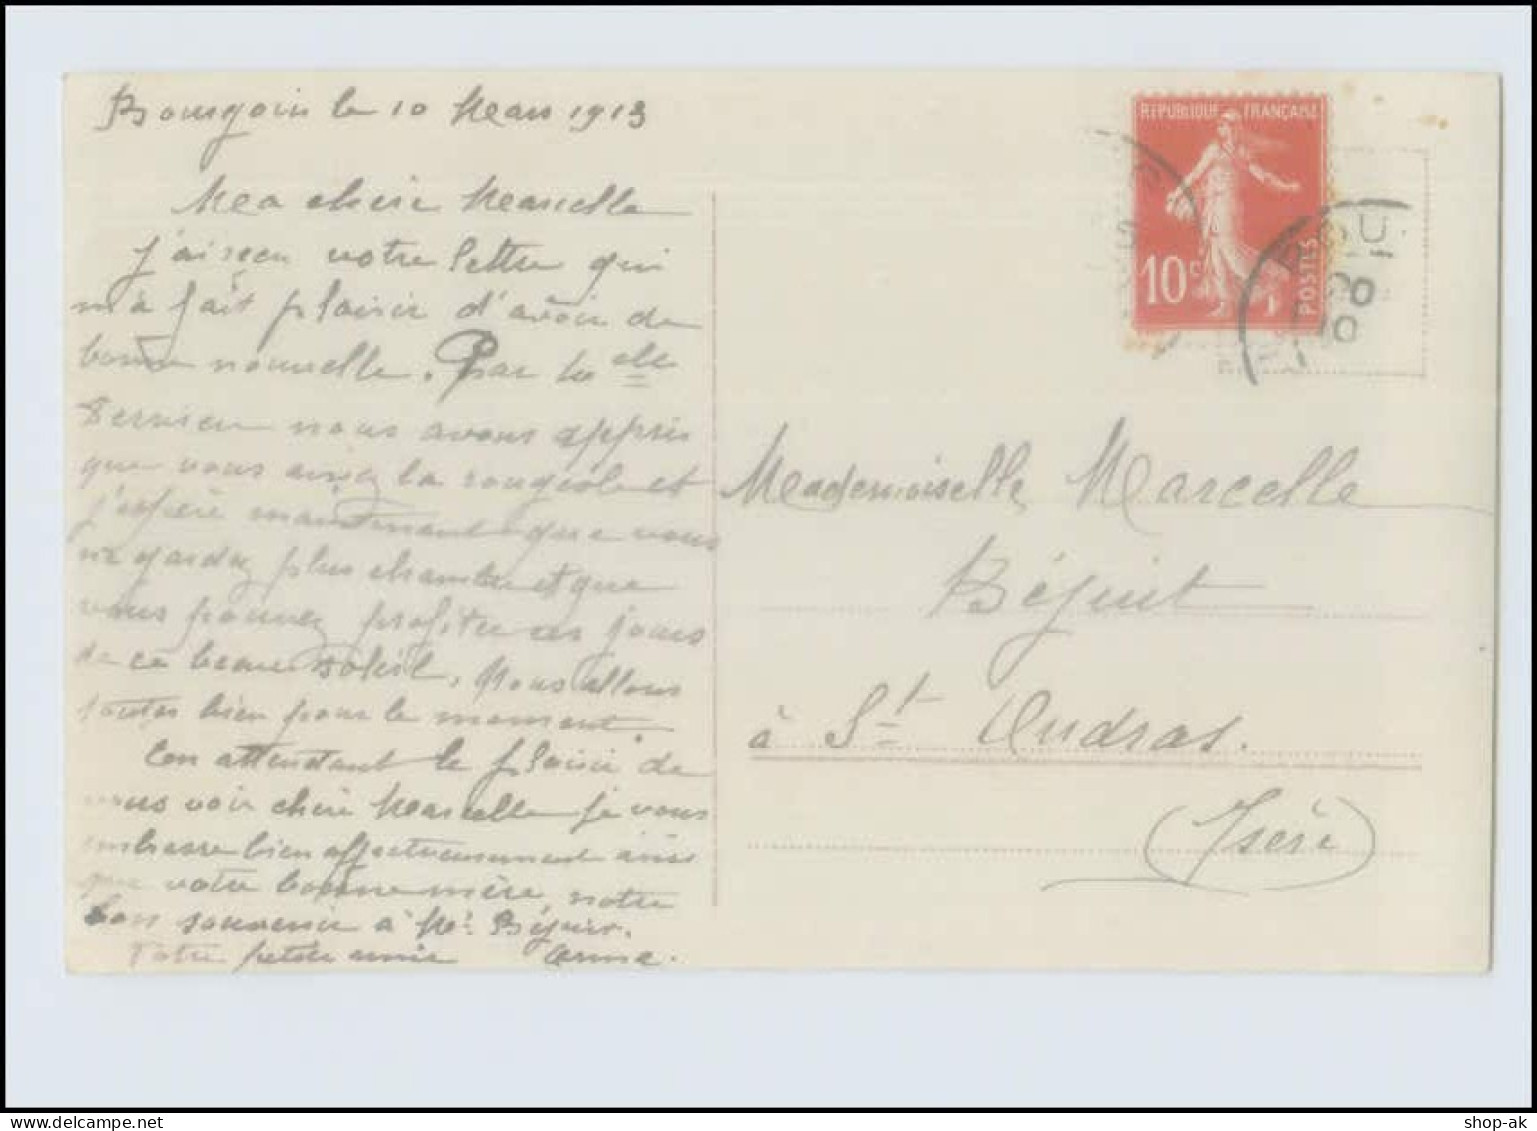 Bourgoin le 10 Mars 1913
Ma chère Marcelle
j'ai reçu votre lettre qui
m'a fait plaisir d'avoir de
bonne nouvelle. Par M elle
nous avons appris
que vous aviez la rougeole et
j'espère maintenant que vous
ne gardez plus chambre et que
vous pouvez profiter ces jours
de ce beau soleil. Nous allons
toutes bien pour le moment.
En attendant le plaisir de
vous voir chère Marcelle je vous
embrasse bien affectueusement ainsi
que votre bonne mère, notre
bon souvenir à Mr Béjuit.
Votre petite amie Anna.
REPUBLIQUE FRANÇAISE
10c
POSTES
Mademoiselle Marcelle
Béjuit
à St Ondras.
(Isère)
shop-ak